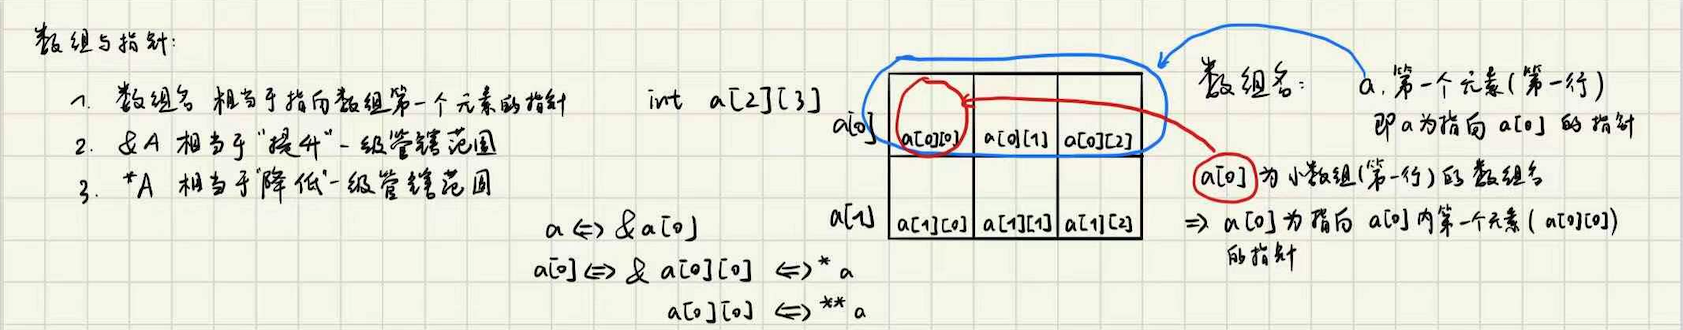 数组与指针:
1. 数组名 相当于指向数组第一个元素的指针
2. &A 相当于"提升"一级管辖范围
3. *A 相当于"降低"一级管辖范围
a <=> &a[0]
a[0] <=> & a[0][0] <=> * a
a[0][0] <=> ** a
int a[2][3]
a[0] a[0][0] a[0][1] a[0][2]
a[1] a[1][0] a[1][1] a[1][2]
数组名: a, 第一个元素(第一行)
即a为指向 a[0] 的指针
a[0] 为小数组(第一行)的数组名
=> a[0] 为指向 a[0] 内第一个元素( a[0][0])
的指针